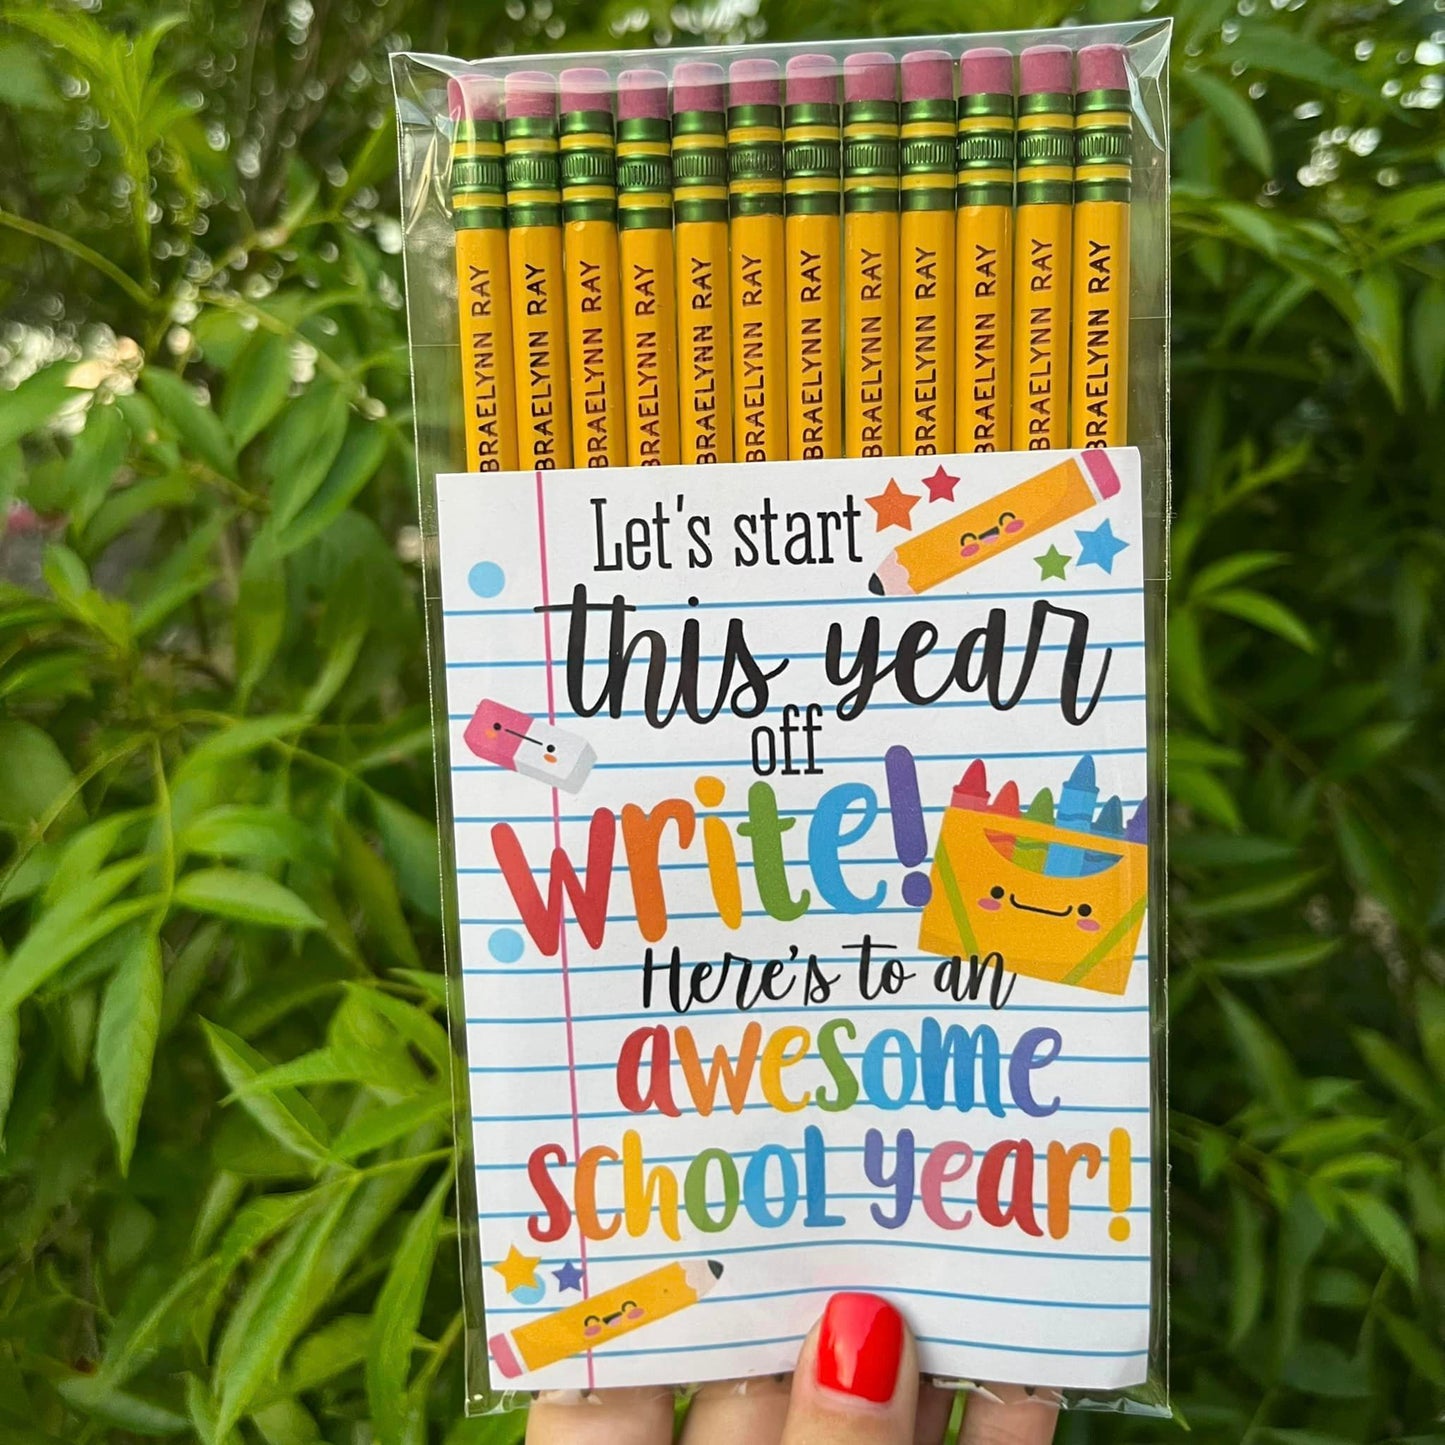 BRAELYNN RAY
BRAELYNN RAY
BRAELYNN RAY
BRAELYNN RAY
BRAELYNN RAY
BRAELYNN RAY
BRAELYNN RAY
BRAELYNN RAY
BRAELYNN RAY
BRAELYNN RAY
BRAELYNN RAY
BRAELYNN RAY
Let's start
this year
off
write!
Here's to an
awesome
school year!